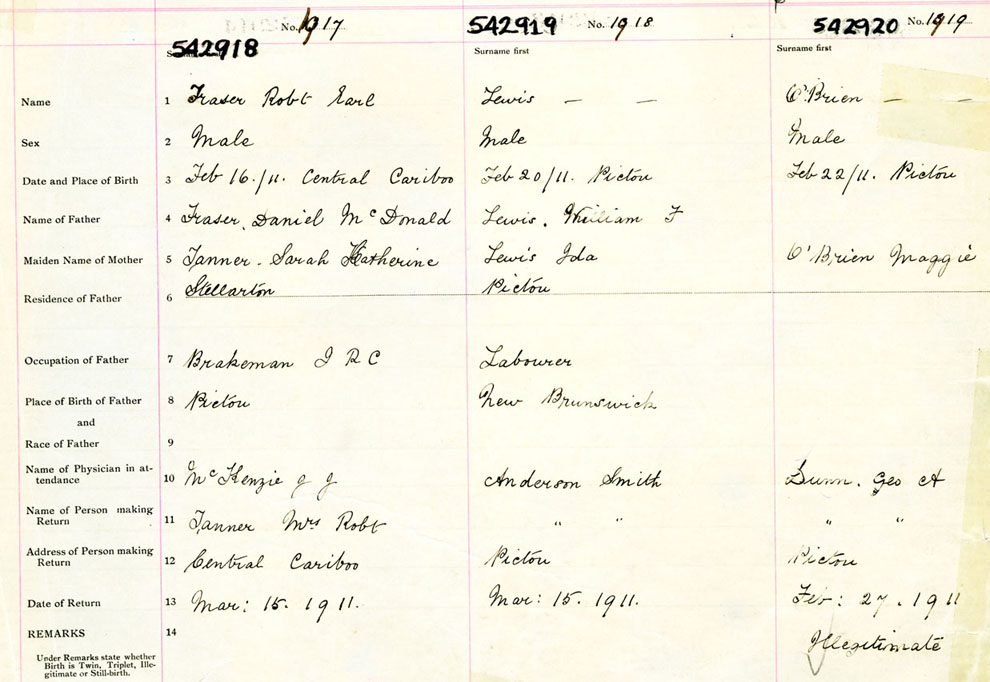 No. 1917 No. 1918 No. 1919
542918 542919 542920
Surname first Surname first
Name 1 Fraser Robt Earl Lewis — — O'Brien — —
Sex 2 Male Male Male
Date and Place of Birth 3 Feb 16./11. Central Cariboo Feb 20/11. Pictou Feb 22/11. Pictou
Name of Father 4 Fraser, Daniel McDonald Lewis, William F
Maiden Name of Mother 5 Tanner - Sarah Katherine Lewis Ida O'Brien Maggie
Residence of Father 6 Stellarton Pictou
Occupation of Father 7 Brakeman I R C Labourer
Place of Birth of Father 8 Pictou New Brunswick
and
Race of Father 9
Name of Physician in at-
tendance 10 McKenzie J J Anderson Smith Dunn, Geo A
Name of Person making
Return 11 Tanner Mrs Robt " " " "
Address of Person making
Return 12 Central Cariboo Pictou Pictou
Date of Return 13 Mar: 15. 1911. Mar: 15. 1911. Feb: 27. 1911
REMARKS 14 Illegitimate
Under Remarks state whether
Birth is Twin, Triplet, Ille-
gitimate or Still-birth.